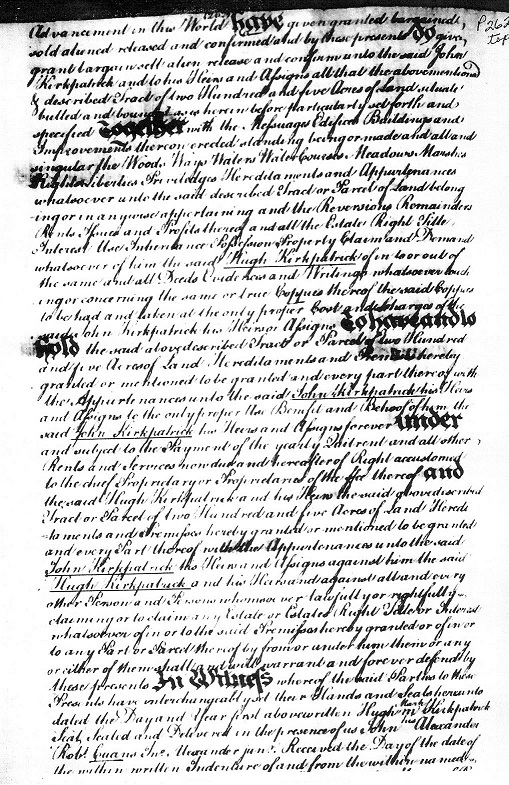 Advancement in this World have given granted bargained, P262
sold aliened released and confirmed and by these presents do give,
grant bargain sell alien release and confirm unto the said John
Kirkpatrick and to his Heirs and Assigns all that the abovementioned
& described Tract of two Hundred and five Acres of Land situate
butted and bounded as is herein before particularly set forth and
specified Together with the Messuages Edifices Buildings and
Improvements thereon erected standing being or made and all and
singular the Woods Ways Waters Water Courses Meadows Marshes
Rights Liberties Priviledges Hereditaments and Appurtenances
whatsoever unto the said described Tract or Parcel of Land belong
ing or in any wise appertaining and the Reversions Remainders
Rents Issues and Profits thereof and all the Estate Right Title
Interest Use Inheritance Possession Property Claim and Demand
whatsoever of him the said Hugh Kirkpatrick of in to or out of
the same and all Deeds Evidences and Writings whatsoever touch
ing or concerning the same or true Coppies thereof the said Coppies
to be had and taken at the only proper Cost and Charges of the
said John Kirkpatrick his Heirs or Assigns To have and to
hold the said abovedescribed Tract or Parcel of two Hundred
and five Acres of Land Hereditaments and Premises hereby
granted or mentioned to be granted and every part thereof with
the Appurtenances unto the said John Kirkpatrick his Heirs
and Assigns to the only proper Use Benefit and Behoof of him the
said John Kirkpatrick his Heirs and Assigns forever under
and subject to the Payment of the yearly Quitrent and all other
Rents and Services now due and hereafter of Right accustomed
to the chief Proprietary or Proprietaries of the Fee thereof and
the said Hugh Kirkpatrick and his Heirs the said abovedescribed
Tract or Parcel of two Hundred and five Acres of Land Heredi
taments and Premisses hereby granted or mentioned to be granted
and every Part thereof with the Appurtenances unto the said
John Kirkpatrick his Heirs and Assigns against him the said
Hugh Kirkpatrick and his Heirs and against all and every
other Person and Persons whomsoever lawfully or rightfully
claiming or to claim any Estate or Estates Right Title or Interest
whatsoever of in or to the said Premisses hereby granted or of in or
to any Part or Parcel thereof by from or under him them or any
or either of them shall and will warrant and forever defend by
these presents In Witness whereof the said Parties to these
Presents have interchangeably set their Hands and Seals hereunto
dated the Day and Year first above written Hugh his Mark Kirkpatrick
Seal, Sealed and Delivered in the presence of us John Alexander
Robt. Evans Jno. Alexander junr. Received the Day of the date of
the within written Indenture of and from the within named